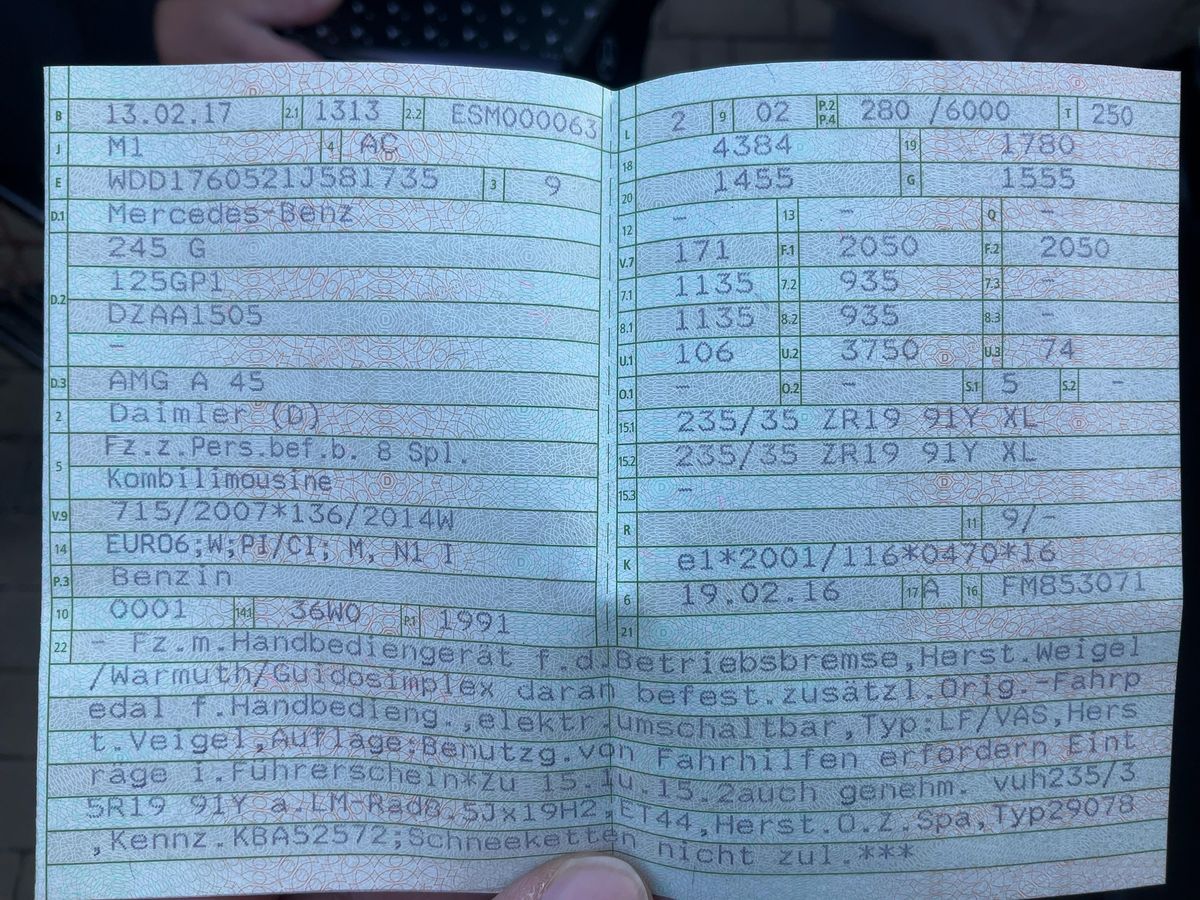 B 13.02.17 2.1 1313 2.2 ESM000063
J M1 4 AC
E WDD1760521J581735 3 9
D.1 Mercedes-Benz
245 G
D.2 125GP1
DZAA1505
-
D.3 AMG A 45
2 Daimler (D)
5 Fz.z.Pers.bef.b. 8 Spl.
Kombilimousine
V.9 715/2007*136/2014W
14 EURO6;W;PI/CI; M, N1 I
P.3 Benzin
10 0001 14.1 36W0 P.1 1991
L 2 9 02 P.2 P.4 280 /6000 T 250
18 4384 19 1780
20 1455 G 1555
12 - 13 - Q -
V.7 171 F.1 2050 F.2 2050
7.1 1135 7.2 935 7.3 -
8.1 1135 8.2 935 8.3 -
U.1 106 U.2 3750 U.3 74
O.1 - O.2 - S.1 5 S.2 -
15.1 235/35 ZR19 91Y XL
15.2 235/35 ZR19 91Y XL
15.3 -
R 11 9/-
K e1*2001/116*0470*16
6 19.02.16 17 A 16 FM853071
21
22 - Fz.m.Handbediengerät f.d.Betriebsbremse,Herst.Weigel
/Warmuth/Guidosimplex daran befest.zusätzl.Orig.-Fahrp
edal f.Handbedieng.,elektr.umschaltbar,Typ:LF/VAS,Hers
t.Veigel,Auflage:Benutzg.von Fahrhilfen erfordern Eint
räge i.Führerschein*Zu 15.1u.15.2auch genehm. vuh235/3
5R19 91Y a.LM-Rad8.5Jx19H2,ET44,Herst.O.Z.Spa,Typ29078
,Kennz.KBA52572;Schneeketten nicht zul.***